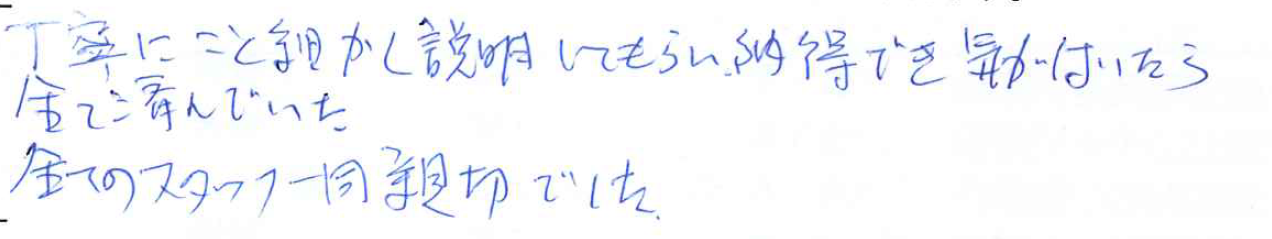 丁寧にこと細かく説明してもらい、納得でき気がついたら
全て済んでいた
全てのスタッフ一同親切でした。